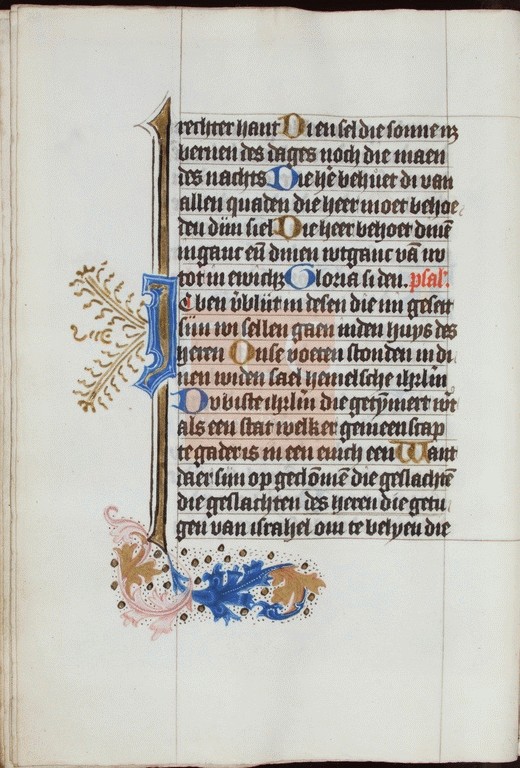 rechter hant Di en sel die sonne nz
bernen des dages noch die maen
des nachts Die hē behuet di van
allen quaden die heer moet behoe
den dijn siel Die heer behoet dinē
inganc eñ dinen wtganc vā nv
tot in ewichz Gloria si den. psalʼ.
Ic ben vblijt in desen die mi geseit
sijn wi sellen gaen inden huys des
heren Onse voeten stonden in di
nen widen sael hemelsche ihrlm
Du biste ihrlm die getymmert wt
als een stat welker gemeenscap
te gader is in een ewich een Want
daer sijn op geclōmē die geslachtē
die geslachten des heren die getu
gen van israhel om te belyen die